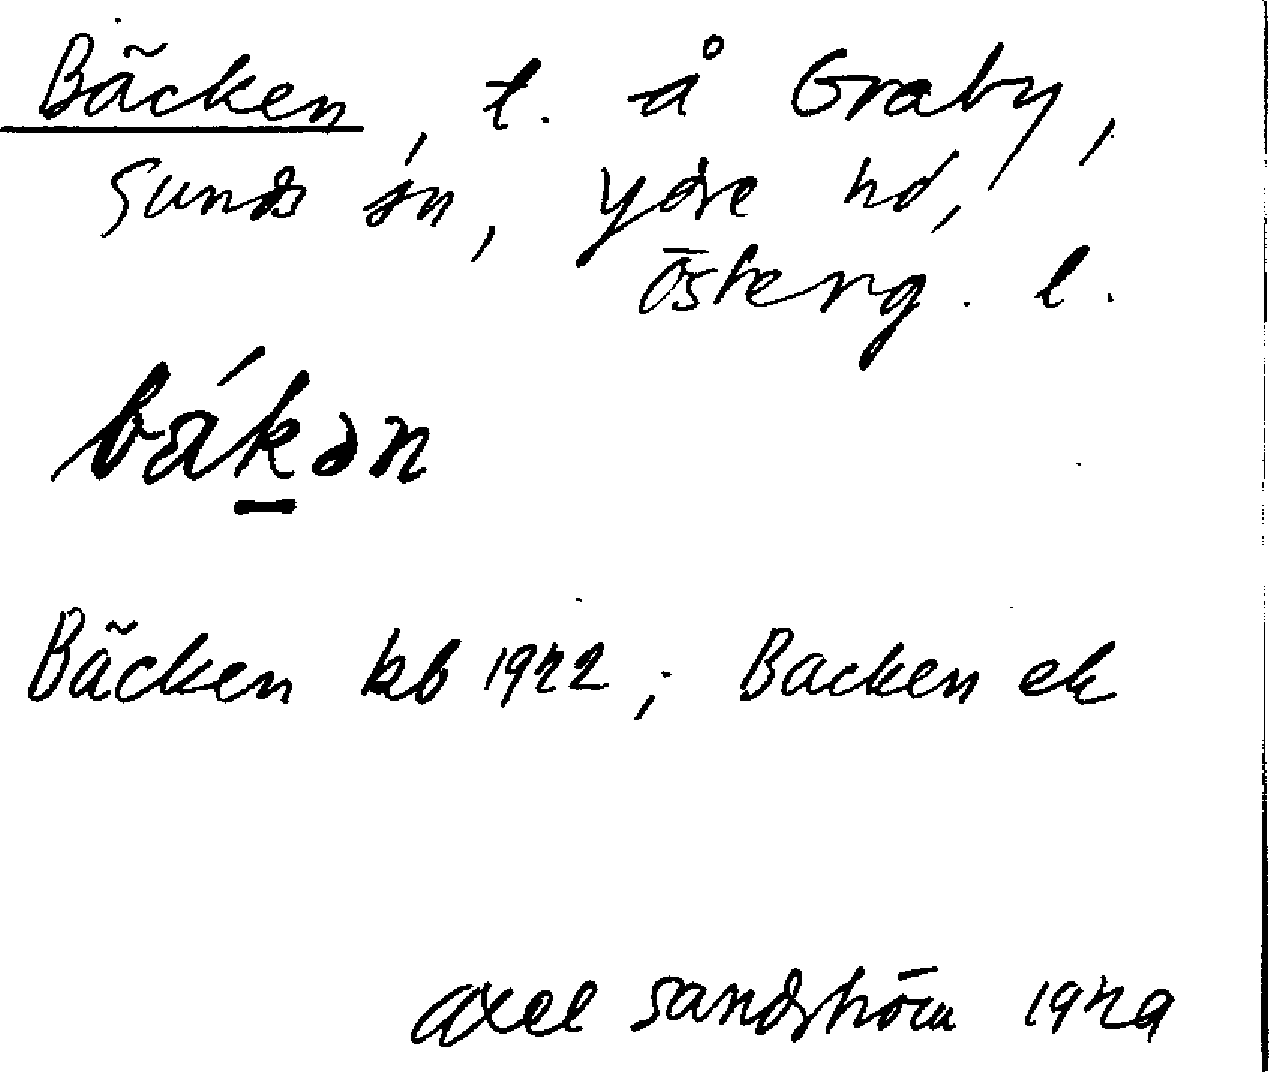 Bäcken, t. å Graby,
Sunds sn, Ydre hd,
Österg. l.
bákən
Bäcken kb 1922; Backen ek
Axel Sandström 1929